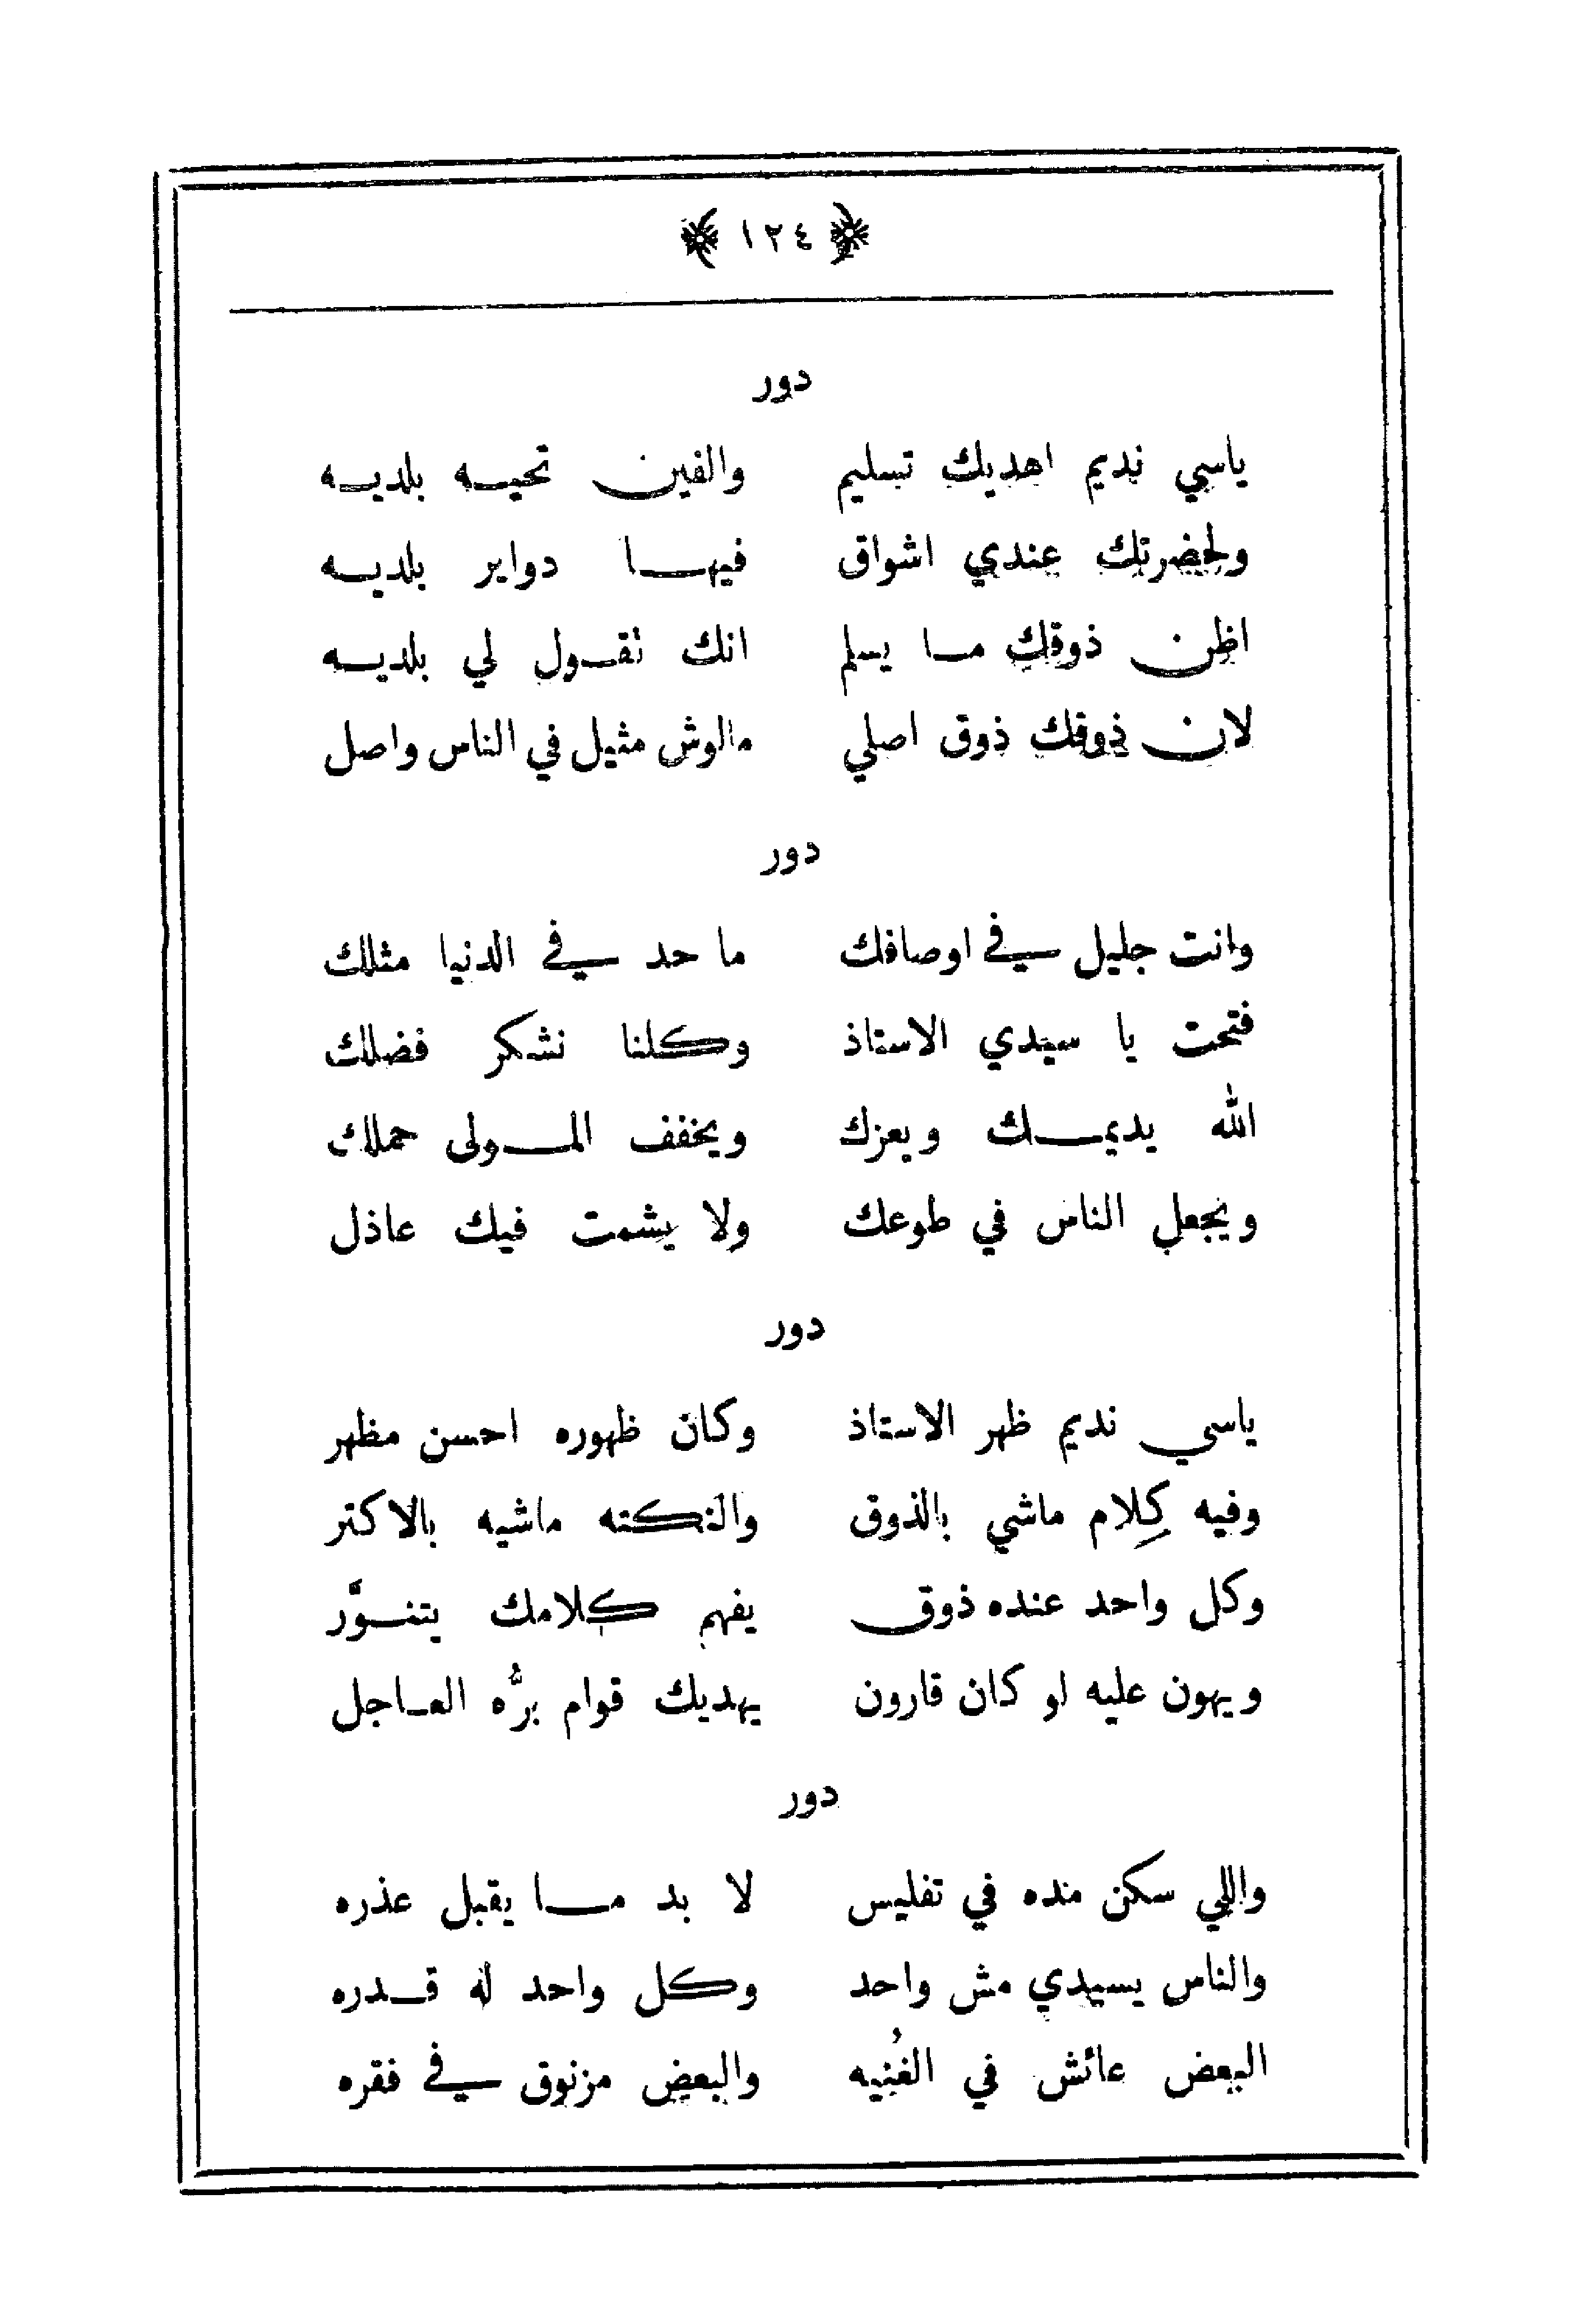 ١٢٤
دور
ياسي نديم اهديك تسليم والفين تحيه بلديه
ولحضرتك عندي اشواق فيها دواير بلديه
اظن ذوقك ما يسلم انك تقول لي بلديه
لان ذوقك ذوق اصلي مالوش مثيل في الناس واصل
دور
وانت جليل في اوصافك ما حد في الدنيا مثلك
فتحت يا سيدي الاستاذ وكلنا نشكر فضلك
الله يديمك ويعزك ويخفف المولى حملك
ويجعل الناس في طوعك ولا يشمت فيك عاذل
دور
ياسي نديم ظهر الاستاذ وكان ظهوره احسن مظهر
وفيه كلام ماشي بالذوق والنكته ماشيه بالاكتر
وكل واحد عنده ذوق يفهم كلامك يتنوَّر
ويهون عليه لو كان قارون يهديك قوام برُّه العاجل
دور
واللي سكن منده في تفليس لا بد ما يقبل عذره
والناس يسيدي مش واحد وكل واحد له قدره
البعض عائش في الغُنيه والبعض مزنوق في فقره